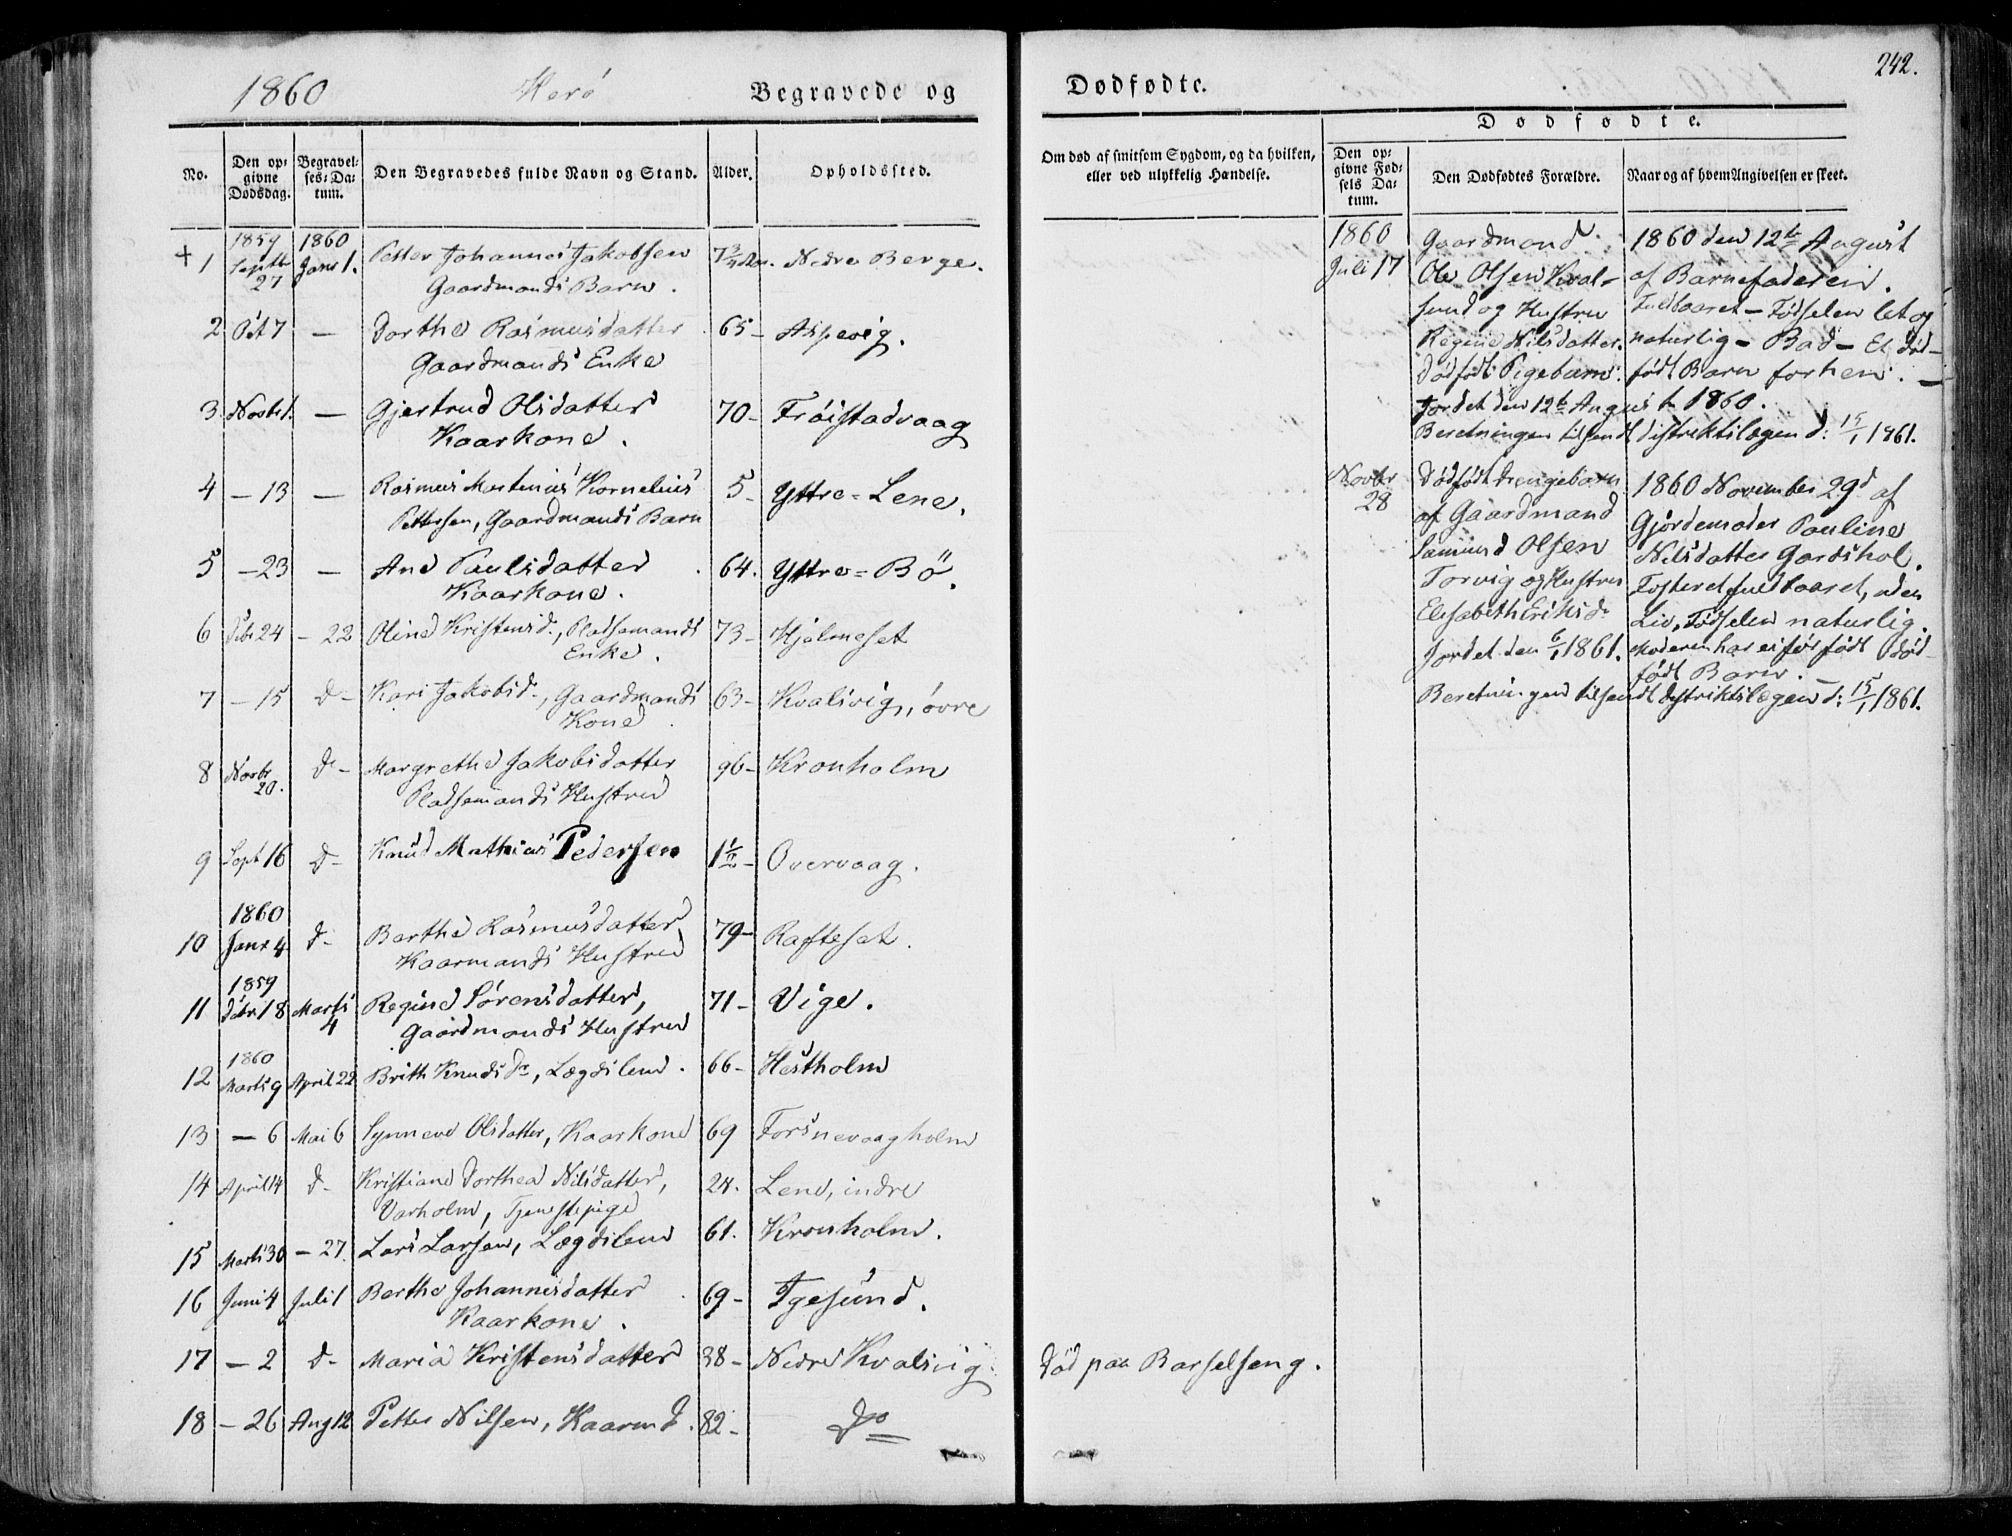 1860 Herö Begravede og
No. Den opgivne Dødsdag. Begravelses-Datum. Den Begravedes fulde Navn og Stand. Alder. Opholdssted.
+ 1 1859 Septbr 27 1860 Janr 1. Petter Johannes Jakobsen 7 3/4 Nedre Berge.
Gaardmands Barn.
2 Oct 7 — Dorthe Rasmusdatter 65 - Aspevig.
Gaardmands Enke
3 Novbr 1. — Gjertrud Olsdatter 70 - Frøistadvaag
Kaarkone.
4 — 13 — Rasmus Martinus Kornelius 5 - Yttre = Lene.
Pettersen, Gaardmands Barn
5 — 23 — Ane Paulsdatter 64. Yttre = Bö.
Kaarkone.
6 Dcbr 24 — 22 Oline Kristensd., Pladsemands 73 - Hjelmeset
Enke.
7 — 15 D - Kari Jakobsd., Gaardmands 63 - Kvalsvig, övre
Kone.
8 Novbr 20. D - Margrethe Jakobsdatter 96 - Kronholm
Pladsemands Hustru
9 Sept 16 D - Knud Mathias Pedersen Overvaag.
10 1860 Janr 4 D - Berthe Rasmusdatter 79 - Rafteset.
Kaarmands Hustru
11 1859 Dcbr 18 Marts 4 Regine Sørensdatter, 71 - Vige.
Gaardmands Hustru
12 1860 Marts 9 April 22 Brith Knudsdr, Lægdslem. 66 - Hestholm
13 — 6 Mai 6 Synneve Olsdatter, Kaarkone 69 Torsnevaagholm
14 April 14 D - Kristiane Dorthea Nilsdatter, 24. Lene, indre
Varholm, Tjenestepige
15 Marts 30 — 27. Lars Larsen, Lægdslem 61. Kronholm.
16 Juni 4 Juli 1 Berthe Johannesdatter 69 - Igesund.
Kaarkone.
17 — 2 D - Maria Kristensdatter 38 - Nedre Kvalsvig.
18 — 26 Aug 12 Petter Nilsen, Kaarmd. 82 - Do
242.
Dødfødte.
Om død af smitsom Sygdom, og da hvilken,
eller ved ulykkelig Hændelse.
Dødfødte.
Den opgivne Fødsels Datum. Den Dødfødtes Forældre. Naar og af hvem Angivelsen er skeet.
1860 Gaardmand 1860 den 12te August
Juli 17 Ole Olsen Kval- af Barnefaderen.
sund og Hustru Fuldbaaret - Fødselen let og
Regine Nilsdatter. naturlig - Bad - Et død-
Dødfödt Pigebarn. födt Barn forhen. —
Jordet den 12te August 1860.
Beretningen tilsendt distriktslægen d: 15/1 1861.
Novbr 28 Dødfödt drengebarn 1860 November 29d af
af Gaardmand Gjordemoder Pauline
Samund Olsen Nilsdatter Gardshol.
Torvig og Hustru Fosteret fuldbaaret, uden
Elisabeth Eriksd. Liv, Fødselen naturlig.
Jordet den 6/1 1861. Moderen har ei før født Død-
født Barn. —
Beretningen tilsendt distriktslægen d: 15/1 1861.
Död paa Barselseng.